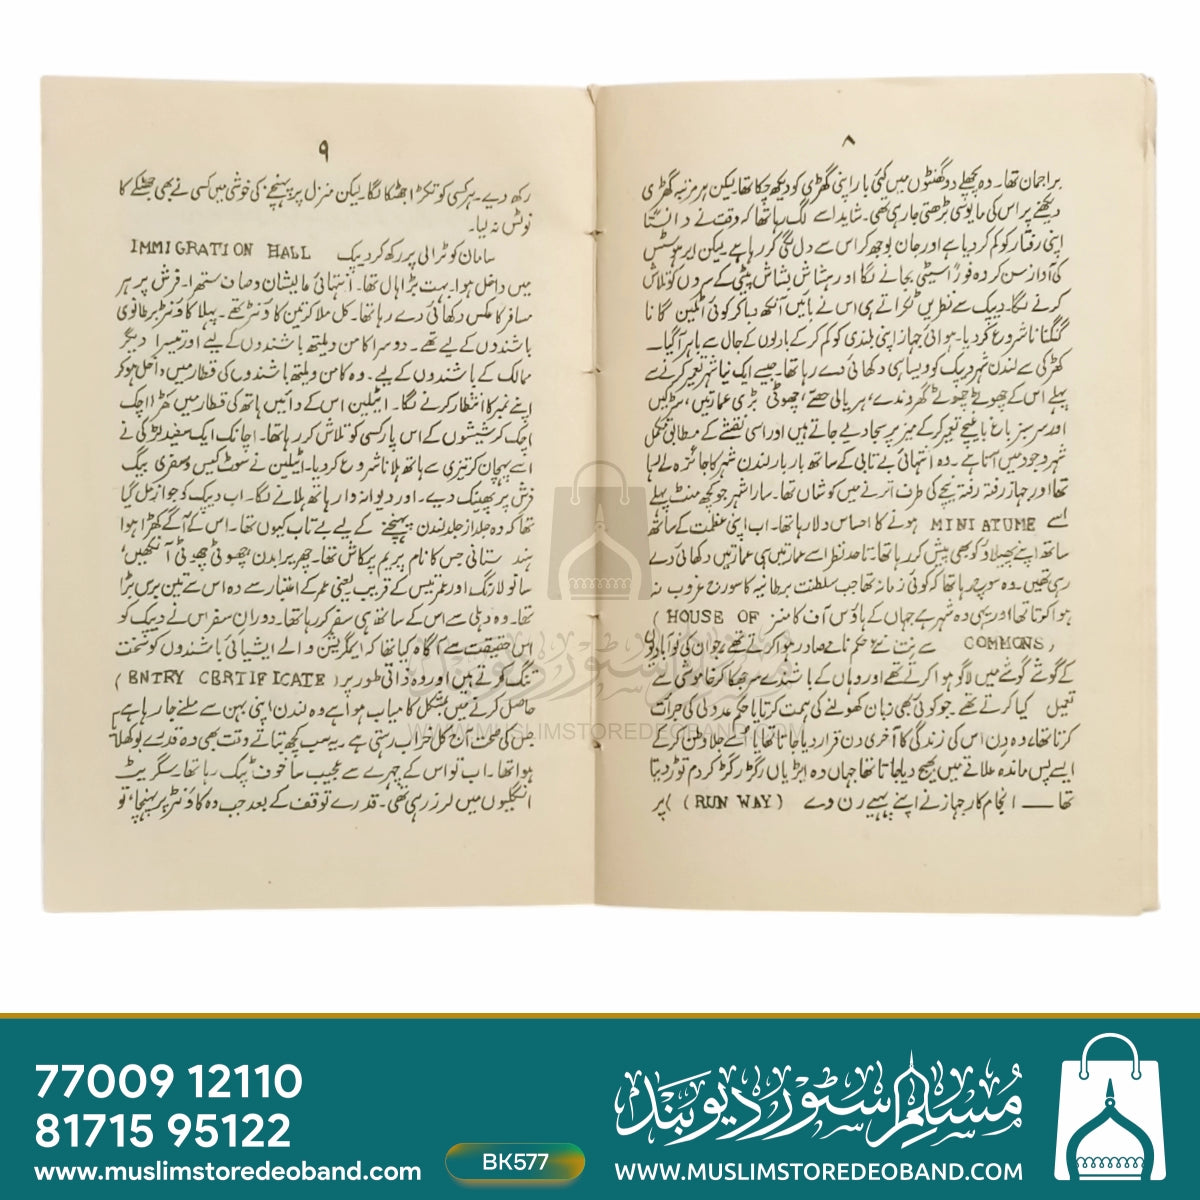 ۸
براجمان تھا۔ وہ پچھلے دو گھنٹوں میں کئی بار اپنی گھڑی کو دیکھ چکا تھا لیکن ہر مرتبہ گھڑی
دیکھنے پر اس کی مایوسی بڑھتی جا رہی تھی۔ شاید اسے لگ رہا تھا کہ وقت نے دانستاً
اپنی رفتار کو کم کر دیا ہے اور جان بوجھ کر اس سے دل لگی کر رہا ہے۔ لیکن ایر ہوسٹس
کی آواز سن کر وہ فوراً سیٹی بجانے لگا اور ہشاش بشاش پیٹی کے سروں کو تلاش
کرنے لگا۔ دیپک سے نظریں ٹکراتے ہی اس نے بائیں آنکھ دبا کر کوئی اٹیلین گانا
گنگنانا شروع کر دیا۔ ہوائی جہاز اپنی بلندی کو کم کر کے بادلوں کے جال سے باہر آ گیا۔
کھڑکی سے لندن شہر دیپک کو ویسا ہی دکھائی دے رہا تھا۔ جیسے ایک نیا شہر تعمیر کرنے سے
پہلے اس کے چھوٹے چھوٹے گھروندے، ہریالی حصے، چھوٹی بڑی عمارتیں، سڑکیں
اور سرسبز باغ باغیچے تعمیر کر کے میز پر سجا دیے جاتے ہیں اور اسی نقشے کے مطابق مکمل
شہر وجود میں آتا ہے۔ وہ انتہائی بے تابی کے ساتھ بار بار لندن شہر کا جائزہ لے رہا
تھا اور جہاز رفتہ رفتہ نیچے کی طرف اترنے میں کوشاں تھا۔ سارا شہر جو کچھ منٹ پہلے
اسے MINIATUME ہونے کا احساس دلا رہا تھا۔ اب اپنی عظمت کے ساتھ
ساتھ اپنے پھیلاؤ کو بھی پیش کر رہا تھا۔ تاحد نظر اسے عمارتیں ہی عمارتیں دکھائی دے
رہی تھیں۔ وہ سوچ رہا تھا کہ کوئی زمانہ تھا جب سلطنت برطانیہ کا سورج غروب نہ
ہوا کرتا تھا اور یہی وہ شہر ہے جہاں کے ہاؤس آف کامنز (HOUSE OF
COMMONS) سے نت نئے حکم نامے صادر ہوا کرتے تھے، جو ان کی نوآبادیوں
کے گوشے گوشے میں لاگو ہوا کرتے تھے اور وہاں کے باشندے سر جھکا کر خاموشی سے
تعمیل کیا کرتے تھے۔ جو کوئی بھی زبان کھولنے کی ہمت کرتا یا حکم عدولی کی جرأت
کرتا تھا، وہ دن اس کی زندگی کا آخری دن قرار دیا جاتا تھا یا اُسے جلا وطن کر کے
ایسے پس ماندہ علاقے میں بھیج دیا جاتا تھا جہاں وہ ایڑیاں رگڑ رگڑ کر دم توڑ دیتا
تھا — انجام کار جہاز نے اپنے پہیے رن وے (RUN WAY) پر
۹
رکھ دیے۔ ہر کسی کو تگڑا جھٹکا لگا۔ لیکن منزل پر پہنچنے کی خوشی میں کسی نے بھی جھٹکے کا
نوٹس نہ لیا۔
سامان کو ٹرالی پر رکھ کر دیپک IMMIGRATION HALL
میں داخل ہوا۔ بہت بڑا ہال تھا۔ انتہائی عالیشان و صاف ستھرا۔ فرش پر ہر
مسافر کا عکس دکھائی دے رہا تھا۔ کل ملا کر تین کاؤنٹر تھے۔ پہلا کاؤنٹر برطانوی
باشندوں کے لیے تھے۔ دوسرا کامن ویلتھ باشندوں کے لیے اور تیسرا دیگر
ممالک کے باشندوں کے لیے۔ وہ کامن ویلتھ باشندوں کی قطار میں داخل ہو کر
اپنے نمبر کا انتظار کرنے لگا۔ اٹیلین اس کے دائیں ہاتھ کی قطار میں کھڑا اچک
اچک کر شیشوں کے اس پار کسی کو تلاش کر رہا تھا۔ اچانک ایک سفید لڑکی نے
اسے پہچان کر تیزی سے ہاتھ ہلانا شروع کر دیا۔ اٹیلین نے سوٹ کیس و سفری بیگ
فرش پر پھینک دیے۔ اور دیوانہ وار ہاتھ ہلانے لگا۔ اب دیپک کو جواز مل گیا
تھا کہ وہ جلد از جلد لندن پہنچنے کے لیے بے تاب کیوں تھا۔ اس کے آگے کھڑا ہوا
ہندستانی جس کا نام پریم پرکاش تھا۔ چھریرا بدن، چھوٹی چھوٹی آنکھیں،
سانولا رنگ اور عمر تیس کے قریب یعنی عمر کے اعتبار سے وہ اس سے تین برس بڑا
تھا۔ وہ دہلی سے اس کے ساتھ ہی سفر کر رہا تھا۔ دوران سفر اس نے دیپک کو
اس حقیقت سے آگاہ کیا تھا کہ ایمگریشن والے ایشیائی باشندوں کو سخت
تنگ کرتے ہیں اور وہ ذاتی طور پر (ENTRY CERTIFICATE)
حاصل کرنے میں بمشکل کامیاب ہوا ہے وہ لندن اپنی بہن سے ملنے جا رہا ہے
جس کی صحت آج کل خراب رہتی ہے۔ یہ سب کچھ بتاتے وقت بھی وہ قدرے بوکھلایا
ہوا تھا۔ اب تو اس کے چہرے سے عجیب سا خوف ٹپک رہا تھا۔ سگریٹ
انگلیوں میں لرز رہی تھی۔ قدرے توقف کے بعد جب وہ کاؤنٹر پر پہنچا، تو
مسلم سٹور دیوبند
WWW.MUSLIMSTOREDEOBAND.COM
77009 12110
81715 95122
www.muslimstoredeoband.com
BK577
مسلم سٹور دیوبند
WWW.MUSLIMSTOREDEOBAND.COM